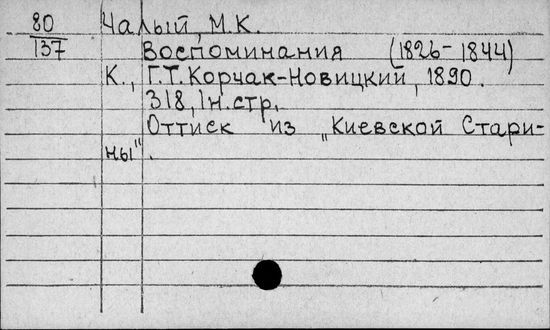 80 Чалый, М.К.
137 Воспоминания (1826-1844)
К., Г.Т. Корчак-Новицкий, 1890.
318, 1н.стр.
Оттиск из „Киевской Стари-
ны".